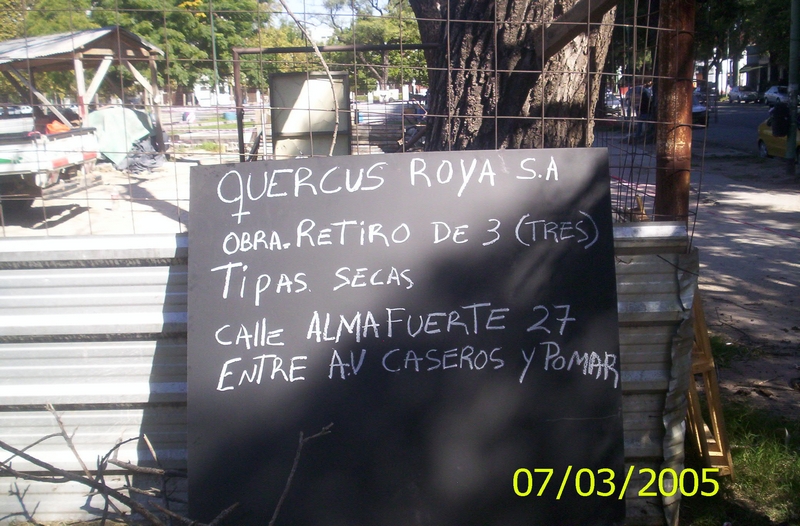 QUERCUS ROYA S.A
+
OBRA. RETIRO DE 3 (TRES)
TIPAS SECAS
CALLE ALMAFUERTE 27
ENTRE A.V CASEROS y POMAR
07/03/2005